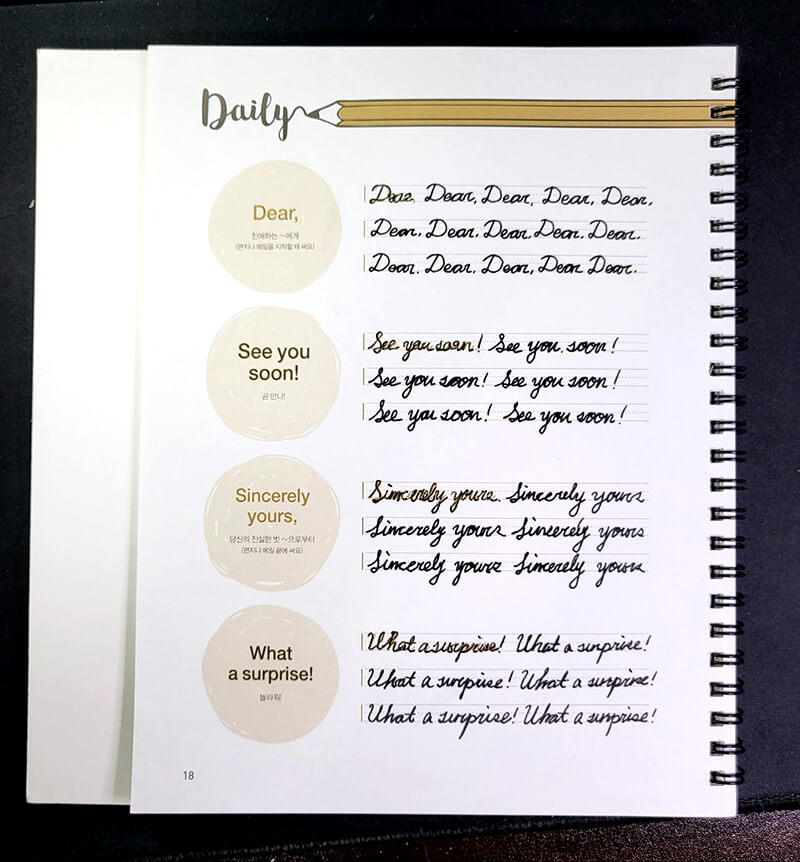 Daily
Dear,
친애하는 ~에게
(편지나 메일을 시작할 때 써요)
Dear, Dear, Dear, Dear, Dear,
Dear. Dear. Dear. Dear. Dear.
Dear. Dear. Dear, Dear Dear.
See you
soon!
곧 만나!
See you soon! See you soon!
See you soon! See you soon!
See you soon! See you soon!
Sincerely
yours,
당신의 진실한 벗 ~으로부터
(편지나 메일 끝에 써요)
Sincerely yours. Sincerely yours
Sincerely yours Sincerely yours
Sincerely yours Sincerely yours
What
a surprise!
놀라워!
What a surprise! What a surprise!
What a surprise! What a surprise!
What a surprise! What a surprise!
18